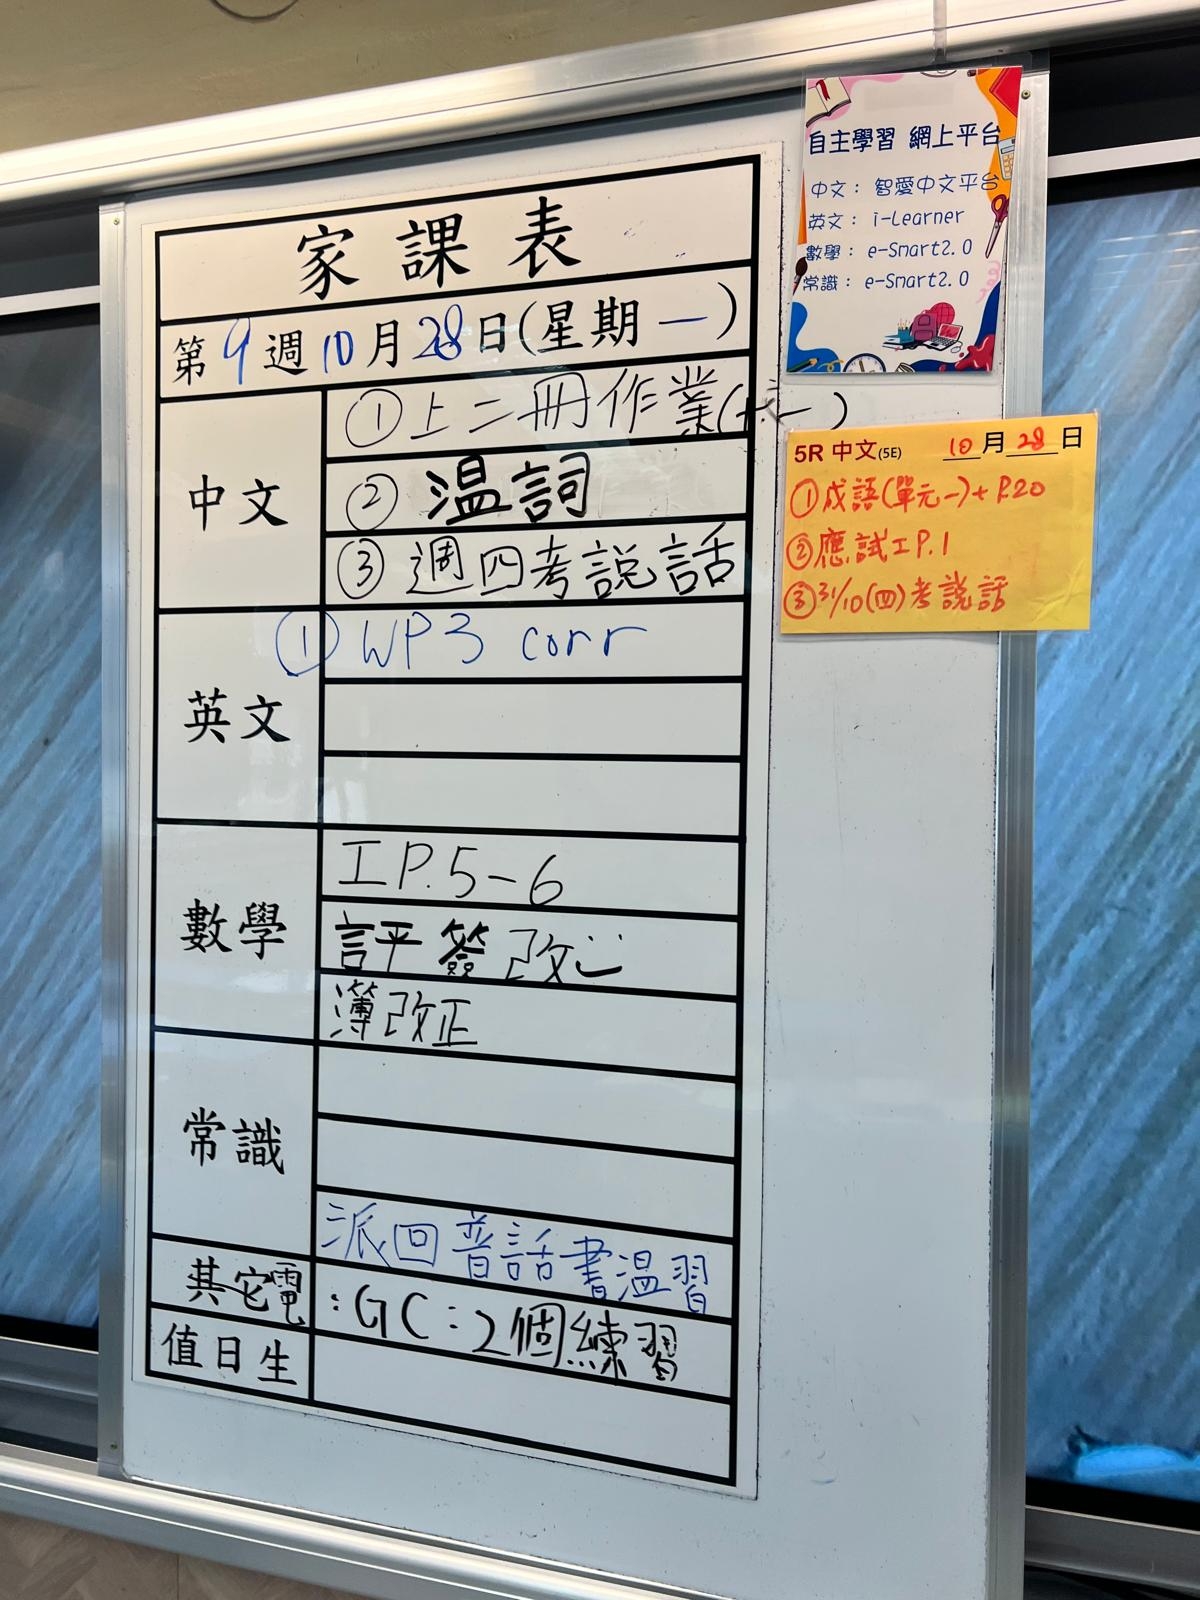 家課表
第9週10月28日(星期一)
中文
①上二冊作業(六一)
②溫詞
③週四考說話
英文
①WP3 corr
數學
工P.5-6
評簽改
簿改正
常識
派回普話書溫習
其它電:GC:2個練習
值日生
自主學習 網上平台
中文: 智愛中文平台
英文: i-Learner
數學: e-Smart2.0
常識: e-Smart2.0
5R 中文(5E) 10月28日
①成語(單元一)+P.20
②應試工P.1
③31/10(四)考說話